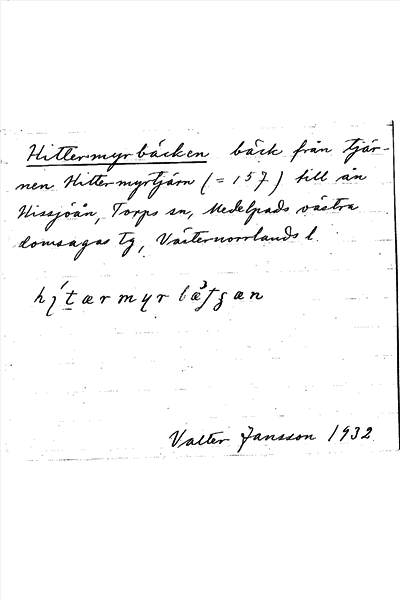 Hittermyrbäcken bäck från tjär-
nen Hittermyrtjärn (= 157) till ån
Hissjöån, Torps sn, Medelpads västra
domsagas tg, Västernorrlands l.
Valter Jansson 1932